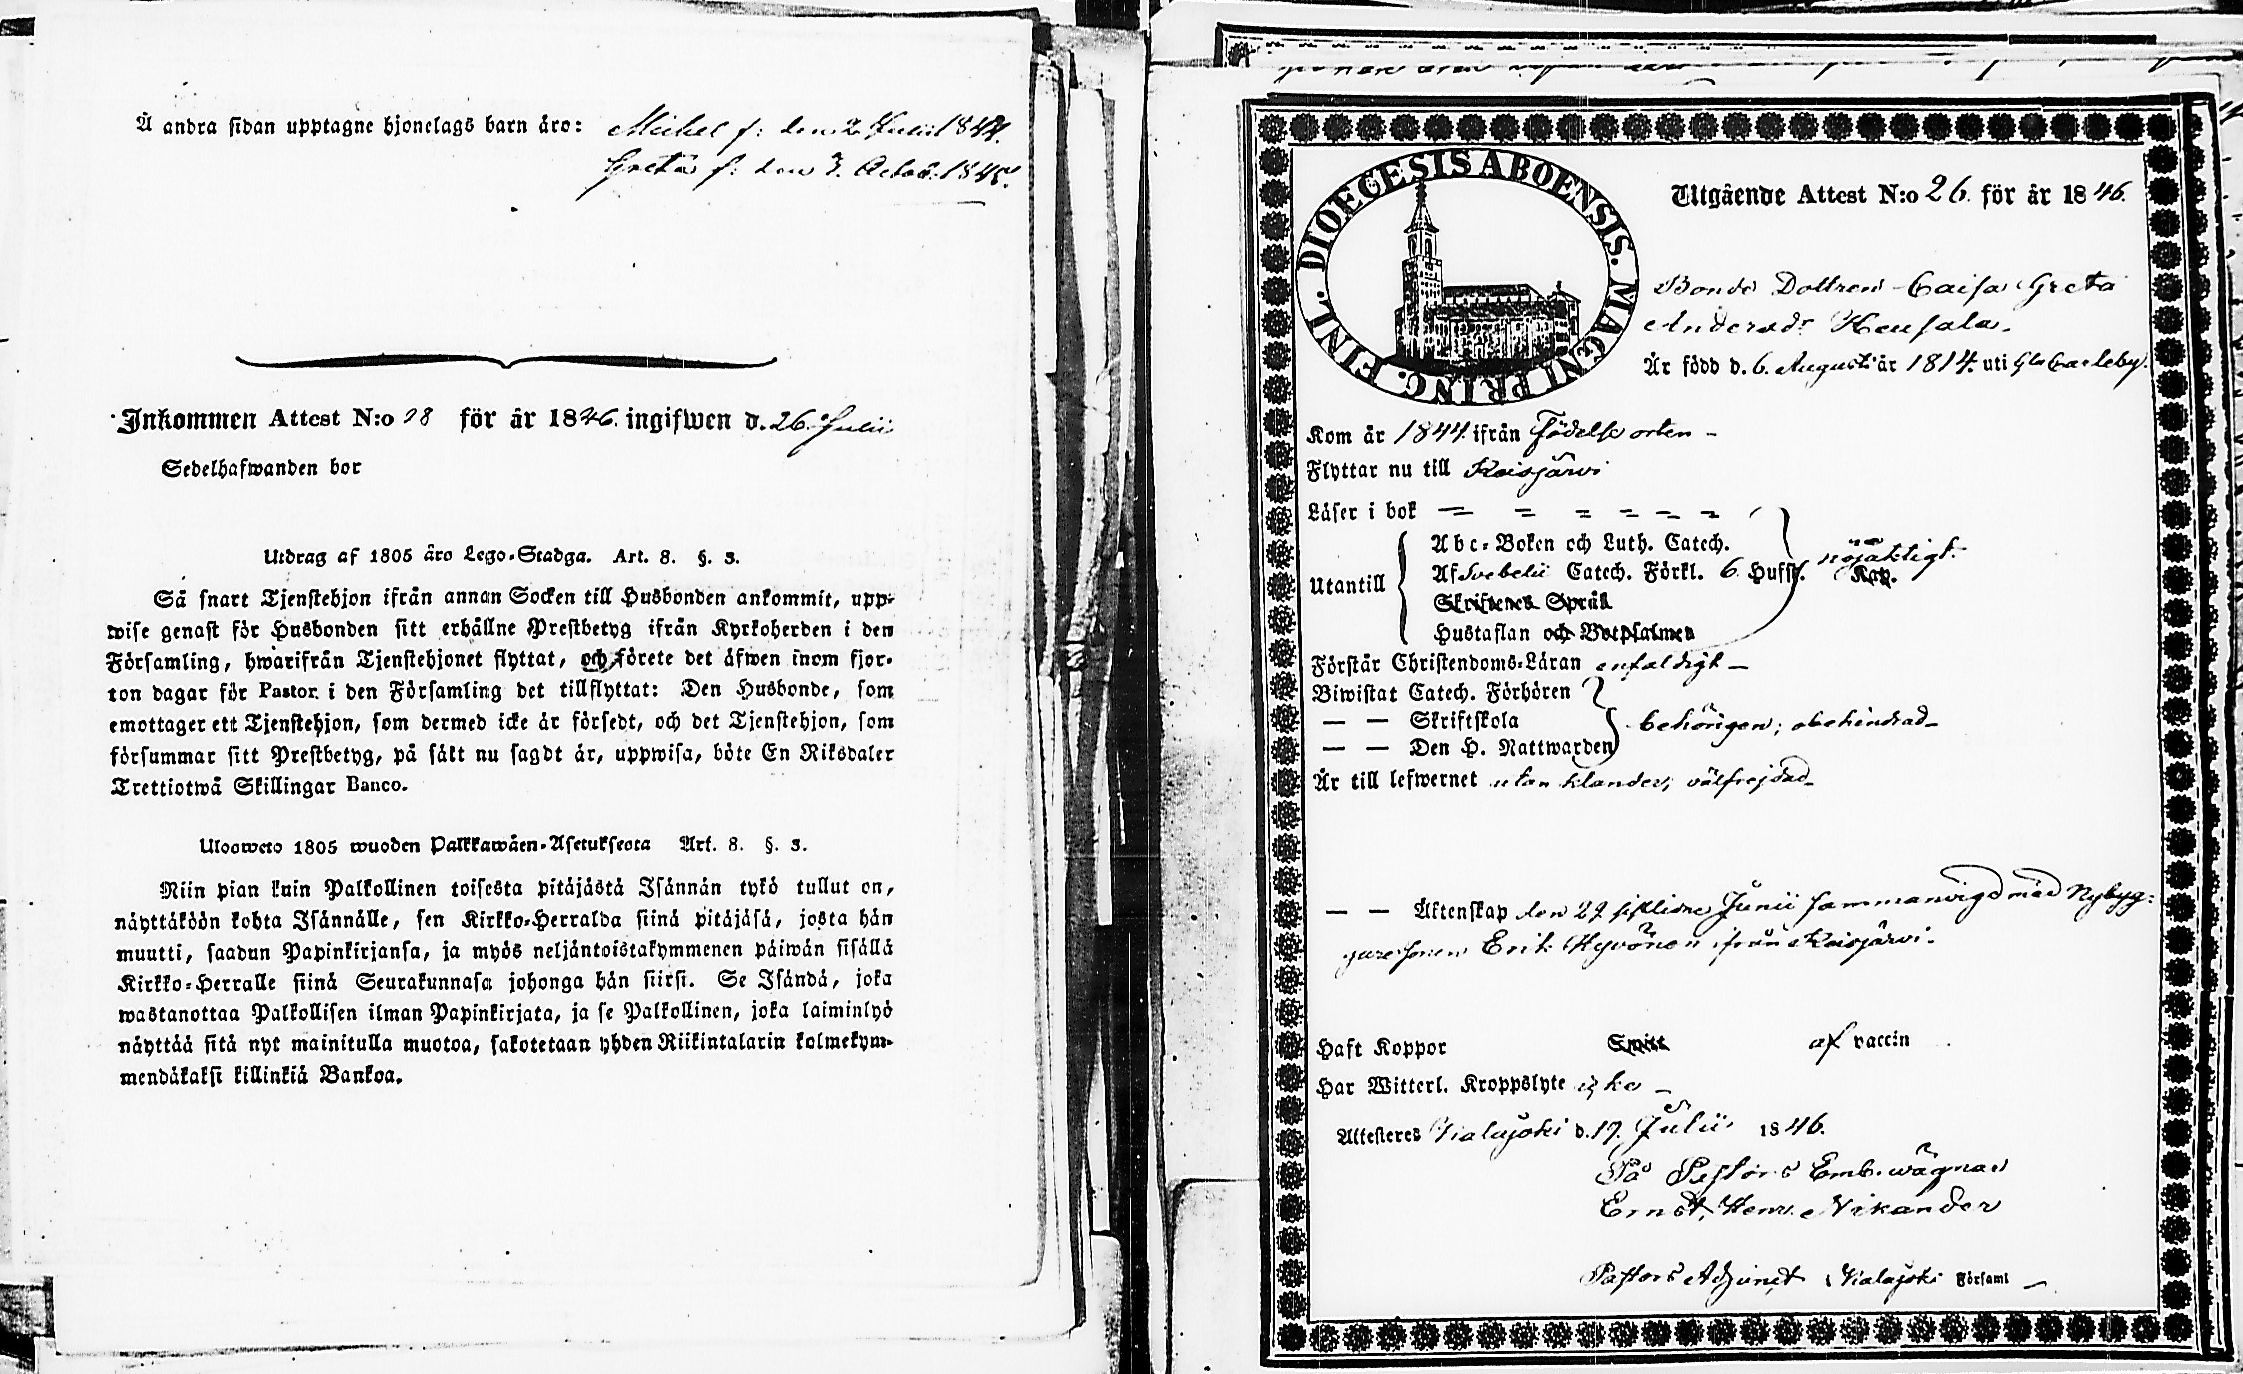 Å andra sidan upptagne hjonelags barn äro: Michel f: den 2 Junii 1844.
Greta f: den 3. Octob. 1845.
Inkommen Attest N:o 28 för år 1846. ingifwen d. 26. Julii
Sedelhafwanden bor
Utdrag af 1805 års Lego-Stadga. Art. 8. §. 3.
Så snart Tjenstehjon ifrån annan Socken till Husbonden ankommit, upp-
wise genast för Husbonden sitt erhållne Prestbetyg ifrån Kyrkoherden i den
Församling, hwarifrån Tjenstehjonet flyttat, och förete det äfwen inom fjor-
ton dagar för Pastor i den Församling det tillflyttat: Den Husbonde, som
emottager ett Tjenstehjon, som dermed icke är försedt, och det Tjenstehjon, som
försummar sitt Prestbetyg, på sätt nu sagdt är, uppwisa, böte En Riksdaler
Trettiotwå Skillingar Banco.
Ulosweto 1805 wuoden Palkkawäen-Asetuksesta Art. 8. §. 3.
Niin pian kuin Palkollinen toisesta pitäjästä Isännän tykö tullut on,
näyttäköön kohta Isännälle, sen Kirkko-Herralda siinä pitäjäsä, josta hän
muutti, saadun Papinkirjansa, ja myös neljäntoistakymmenen päiwän sisällä
Kirkko-Herralle siinä Seurakunnasa johonga hän siirsi. Se Isändä, joka
wastanottaa Palkollisen ilman Papinkirjata, ja se Palkollinen, joka laiminlyö
näyttää sitä nyt mainitulla muotoa, sakotetaan yhden Riikintalarin kolmekym-
mendäkaksi killinkiä Bankoa.
DIOECESIS ABOENSIS. MAGNI PRINC. FINL.
Utgående Attest N:o 26. för år 1846.
Bonde Dottren Caisa Greta
Andersdr Heusala.
Är född d. 6. Augusti år 1814. uti Gla Carleby.
Kom år 1844. ifrån Födelse orten -
Flyttar nu till Reisjärvi
Läser i bok
Utantill
Abc-Boken och Luth. Catech.
Af Svebelii Catech. Förkl. 6. Hufst. Kap. nöjaktigt.
Skriftenes Språk
Hustaflan och Botpsalmen
Förstår Christendoms-Läran enfaldigt -
Biwistat Catech. Förhören
— — Skriftskola behörigen; obehindrad -
— — Den H. Nattwarden
Är till lefwernet utan klander, välfrejdad -
— — Äktenskap den 29 sistlidne Junii sammanvigd med Nybyg-
garesonen Erik Hyvönen ifrån Reisjärvi.
Haft Koppor Smitt af vaccin
Har Witterl. Kroppslyte icke -
Attesteres Kalajoki d. 17. Julii 1846.
På Pastors Embs. wägnar
Ernst. Henr. Nikander
Pastors Adjunct i Kalajoki Församl -